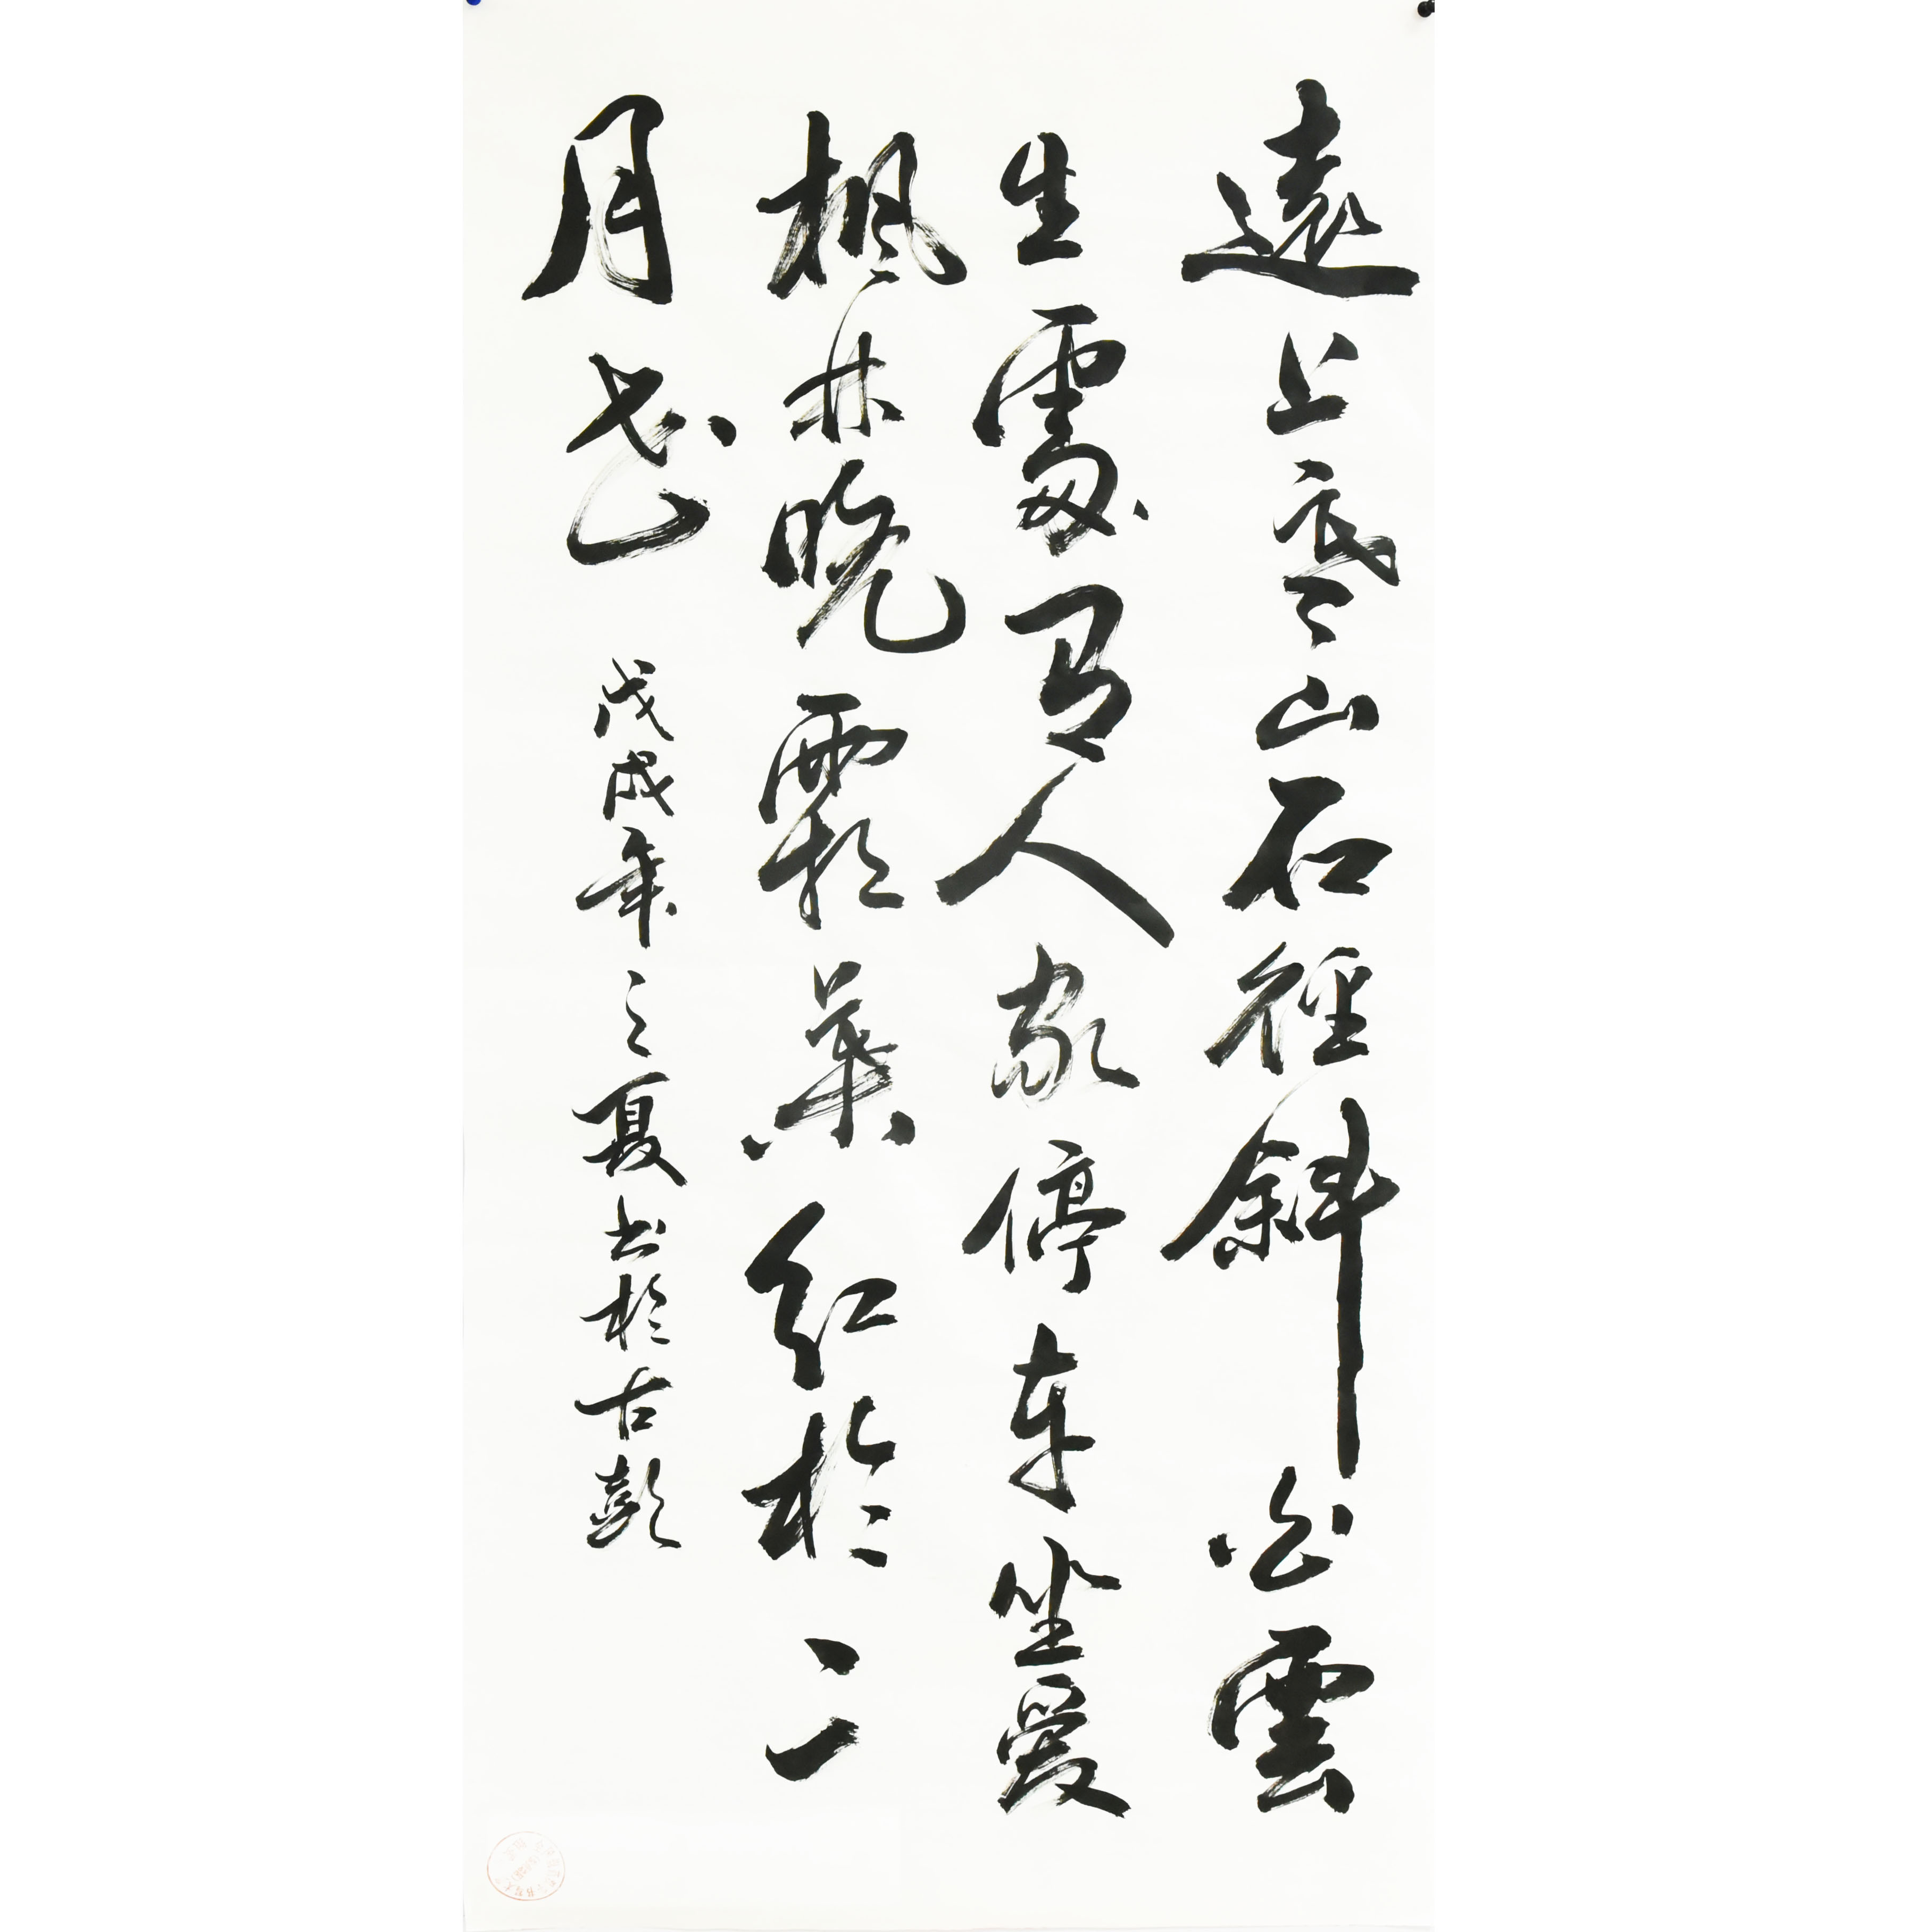 遠上寒山石徑斜白雲
生處有人家停车坐愛
楓林晚霜葉红於二
月花
戊戌年之夏书於古彭